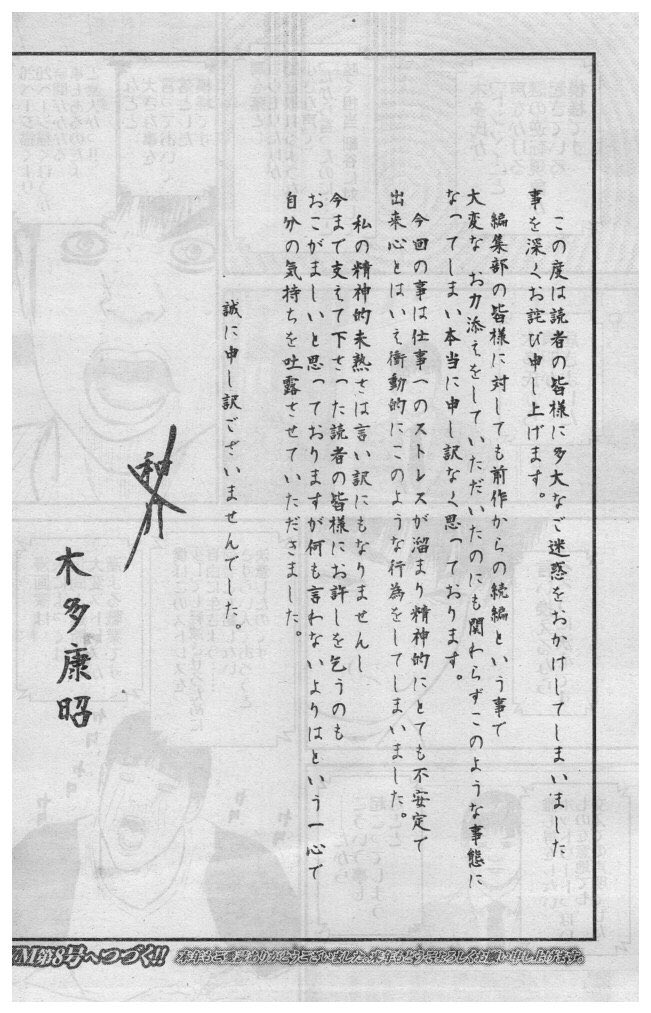 この度は読者の皆様に多大なご迷惑をおかけしてしまいました
事を深くお詫び申し上げます。
編集部の皆様に対しても前作からの続編という事で
大変な お力添えをしていただいたのにも関わらずこのような事態に
なってしまい本当に申し訳なく思っております。
今回の事は仕事へのストレスが溜まり精神的にとても不安定で
出来心とはいえ衝動的にこのような行為をしてしまいました。
私の精神的未熟さは言い訳にもなりませんし
今まで支えて下さった読者の皆様にお許しを乞うのも
おこがましいと思っておりますが何も言わないよりはという一心で
自分の気持ちを吐露させていただきました。
誠に申し訳ございませんでした。
和介
木多康昭
M第8号へつづく!!
本年もご愛読ありがとうございました。来年もどうぞよろしくお願い申し上げます。